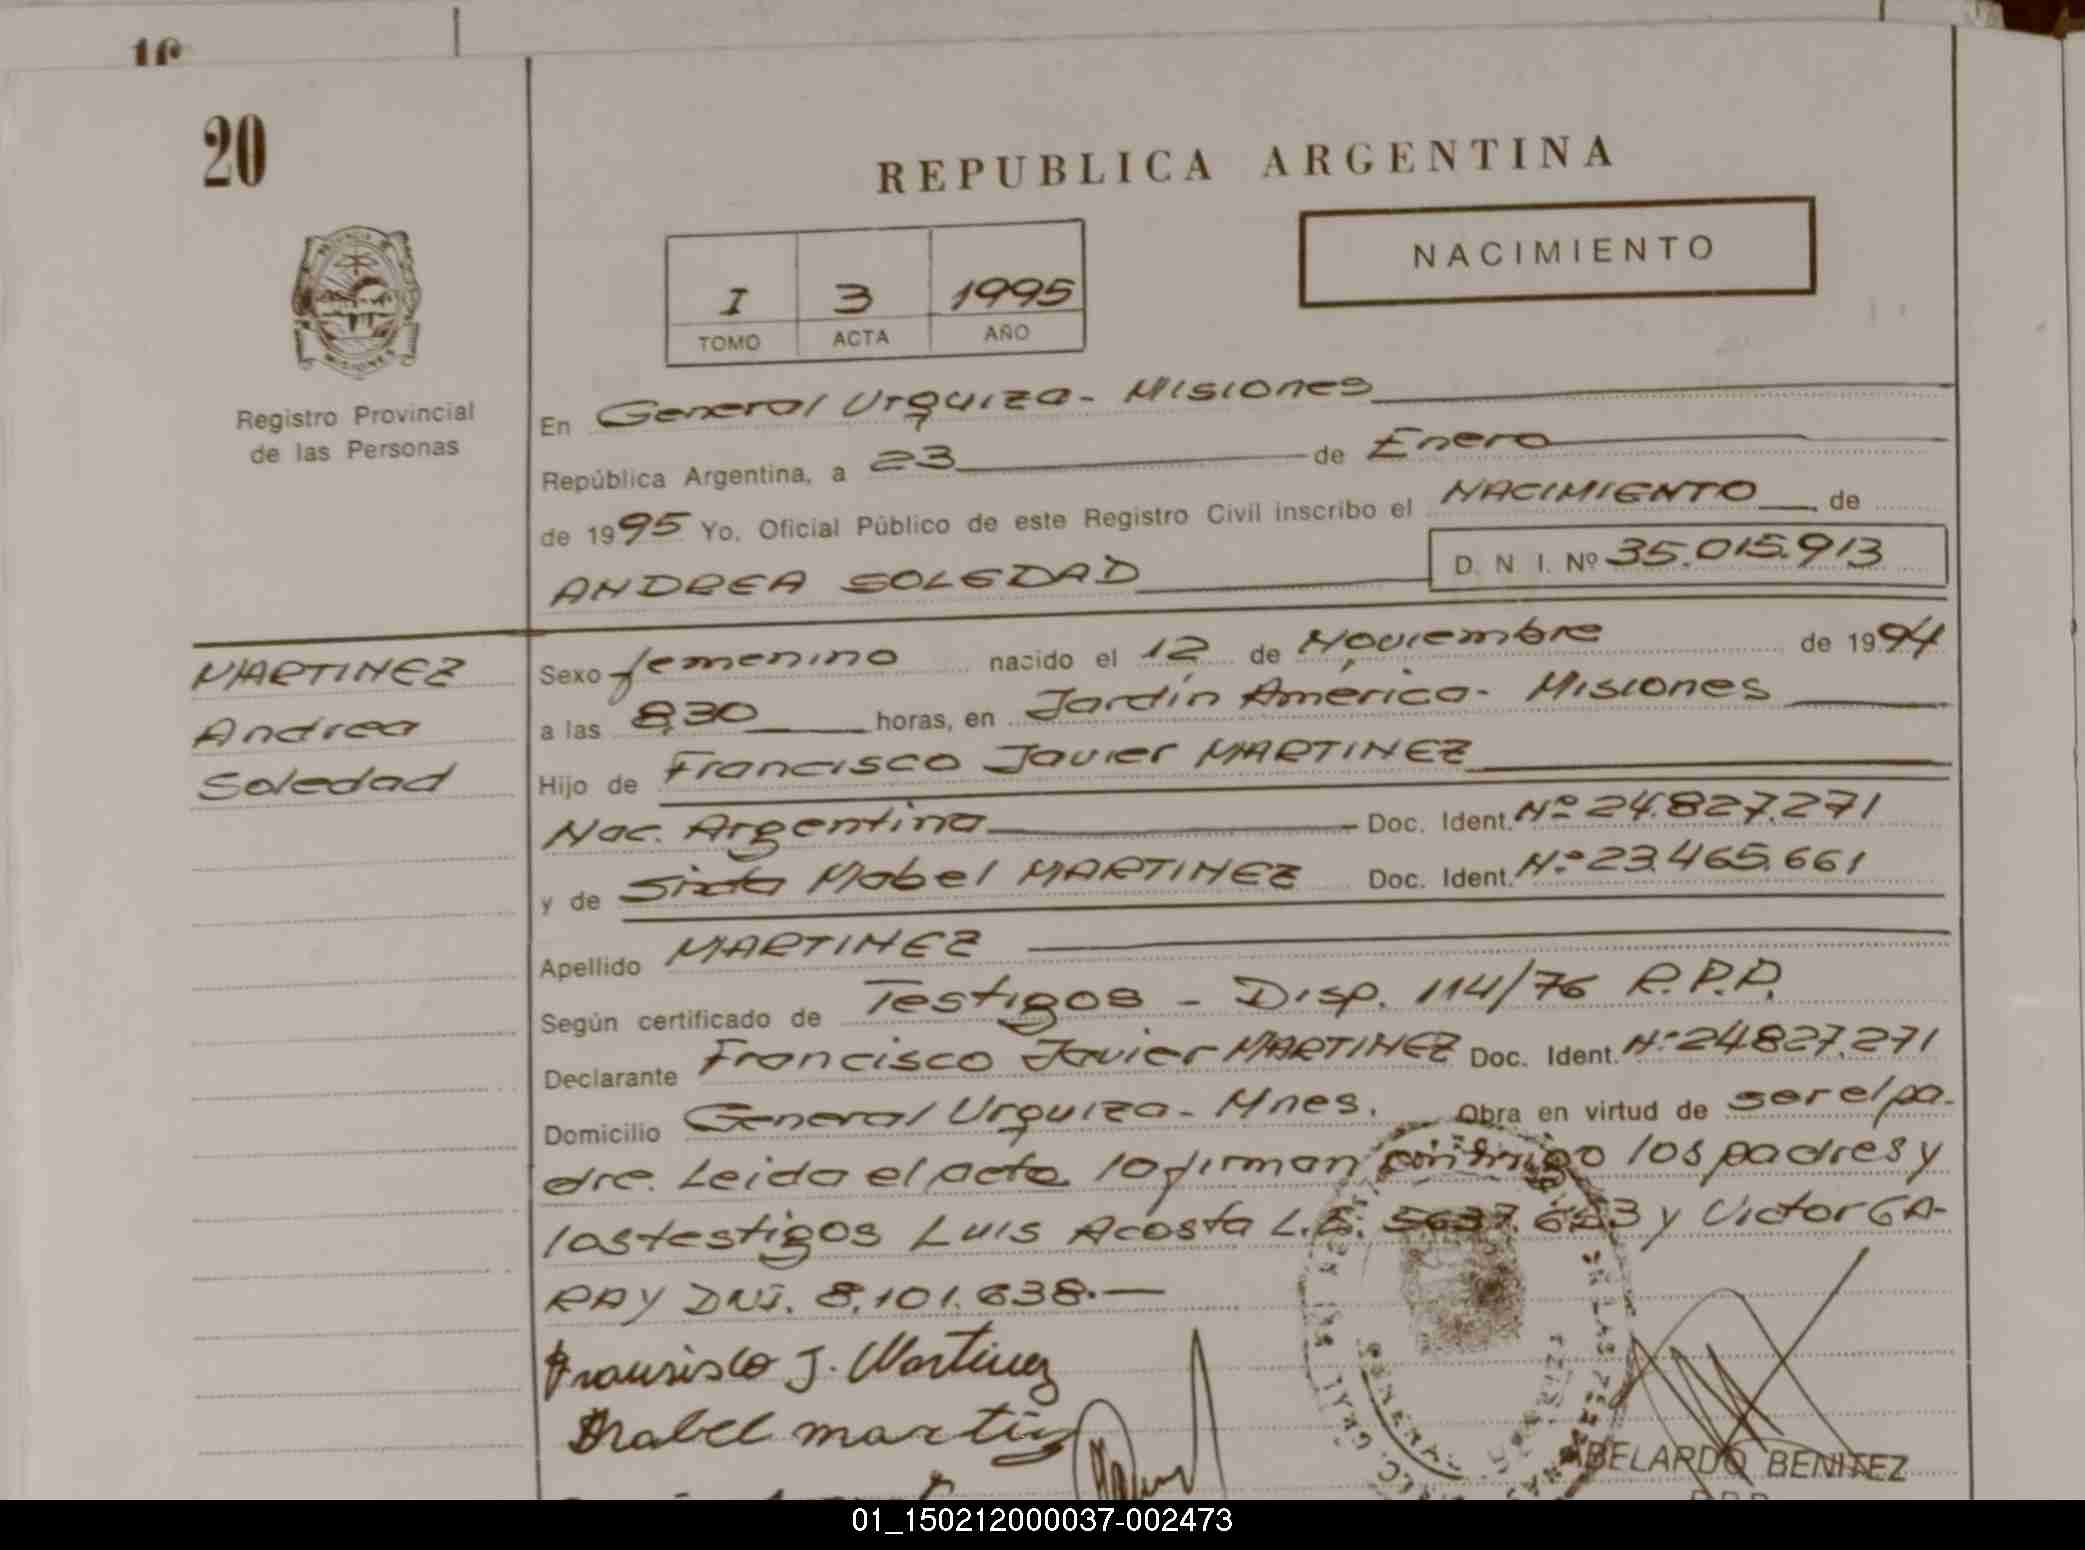 20
REPUBLICA ARGENTINA
NACIMIENTO
I 3 1995
TOMO ACTA AÑO
PROVINCIA DE MISIONES
Registro Provincial
de las Personas
En General Urquiza - Misiones
República Argentina, a 23 de Enero
de 1995 Yo, Oficial Público de este Registro Civil inscribo el NACIMIENTO, de
ANDREA SOLEDAD D. N. I. Nº 35.015.913
MARTINEZ
Andrea
Soledad
Sexo femenino nacido el 12 de Noviembre de 1994
a las 8,30 horas, en Jardín América - Misiones
Hijo de Francisco Javier MARTINEZ
Nac. Argentina Doc. Ident. Nº 24.827.271
y de Mabel MARTINEZ Doc. Ident. Nº 23.465.661
Apellido MARTINEZ
Según certificado de Testigos - Disp. 114/76 R.P.P.
Declarante Francisco Javier MARTINEZ Doc. Ident. Nº 24.827.271
Domicilio General Urquiza - Mnes. Obra en virtud de ser el pa-
dre. Leida el acta lo firman conmigo los padres y
los testigos Luis Acosta L.E. y Victor GA-
RAY DNI. 8.101.638.—
Francisco J. Martinez
Mabel martinez
ABELARDO BENITEZ
01_150212000037-002473